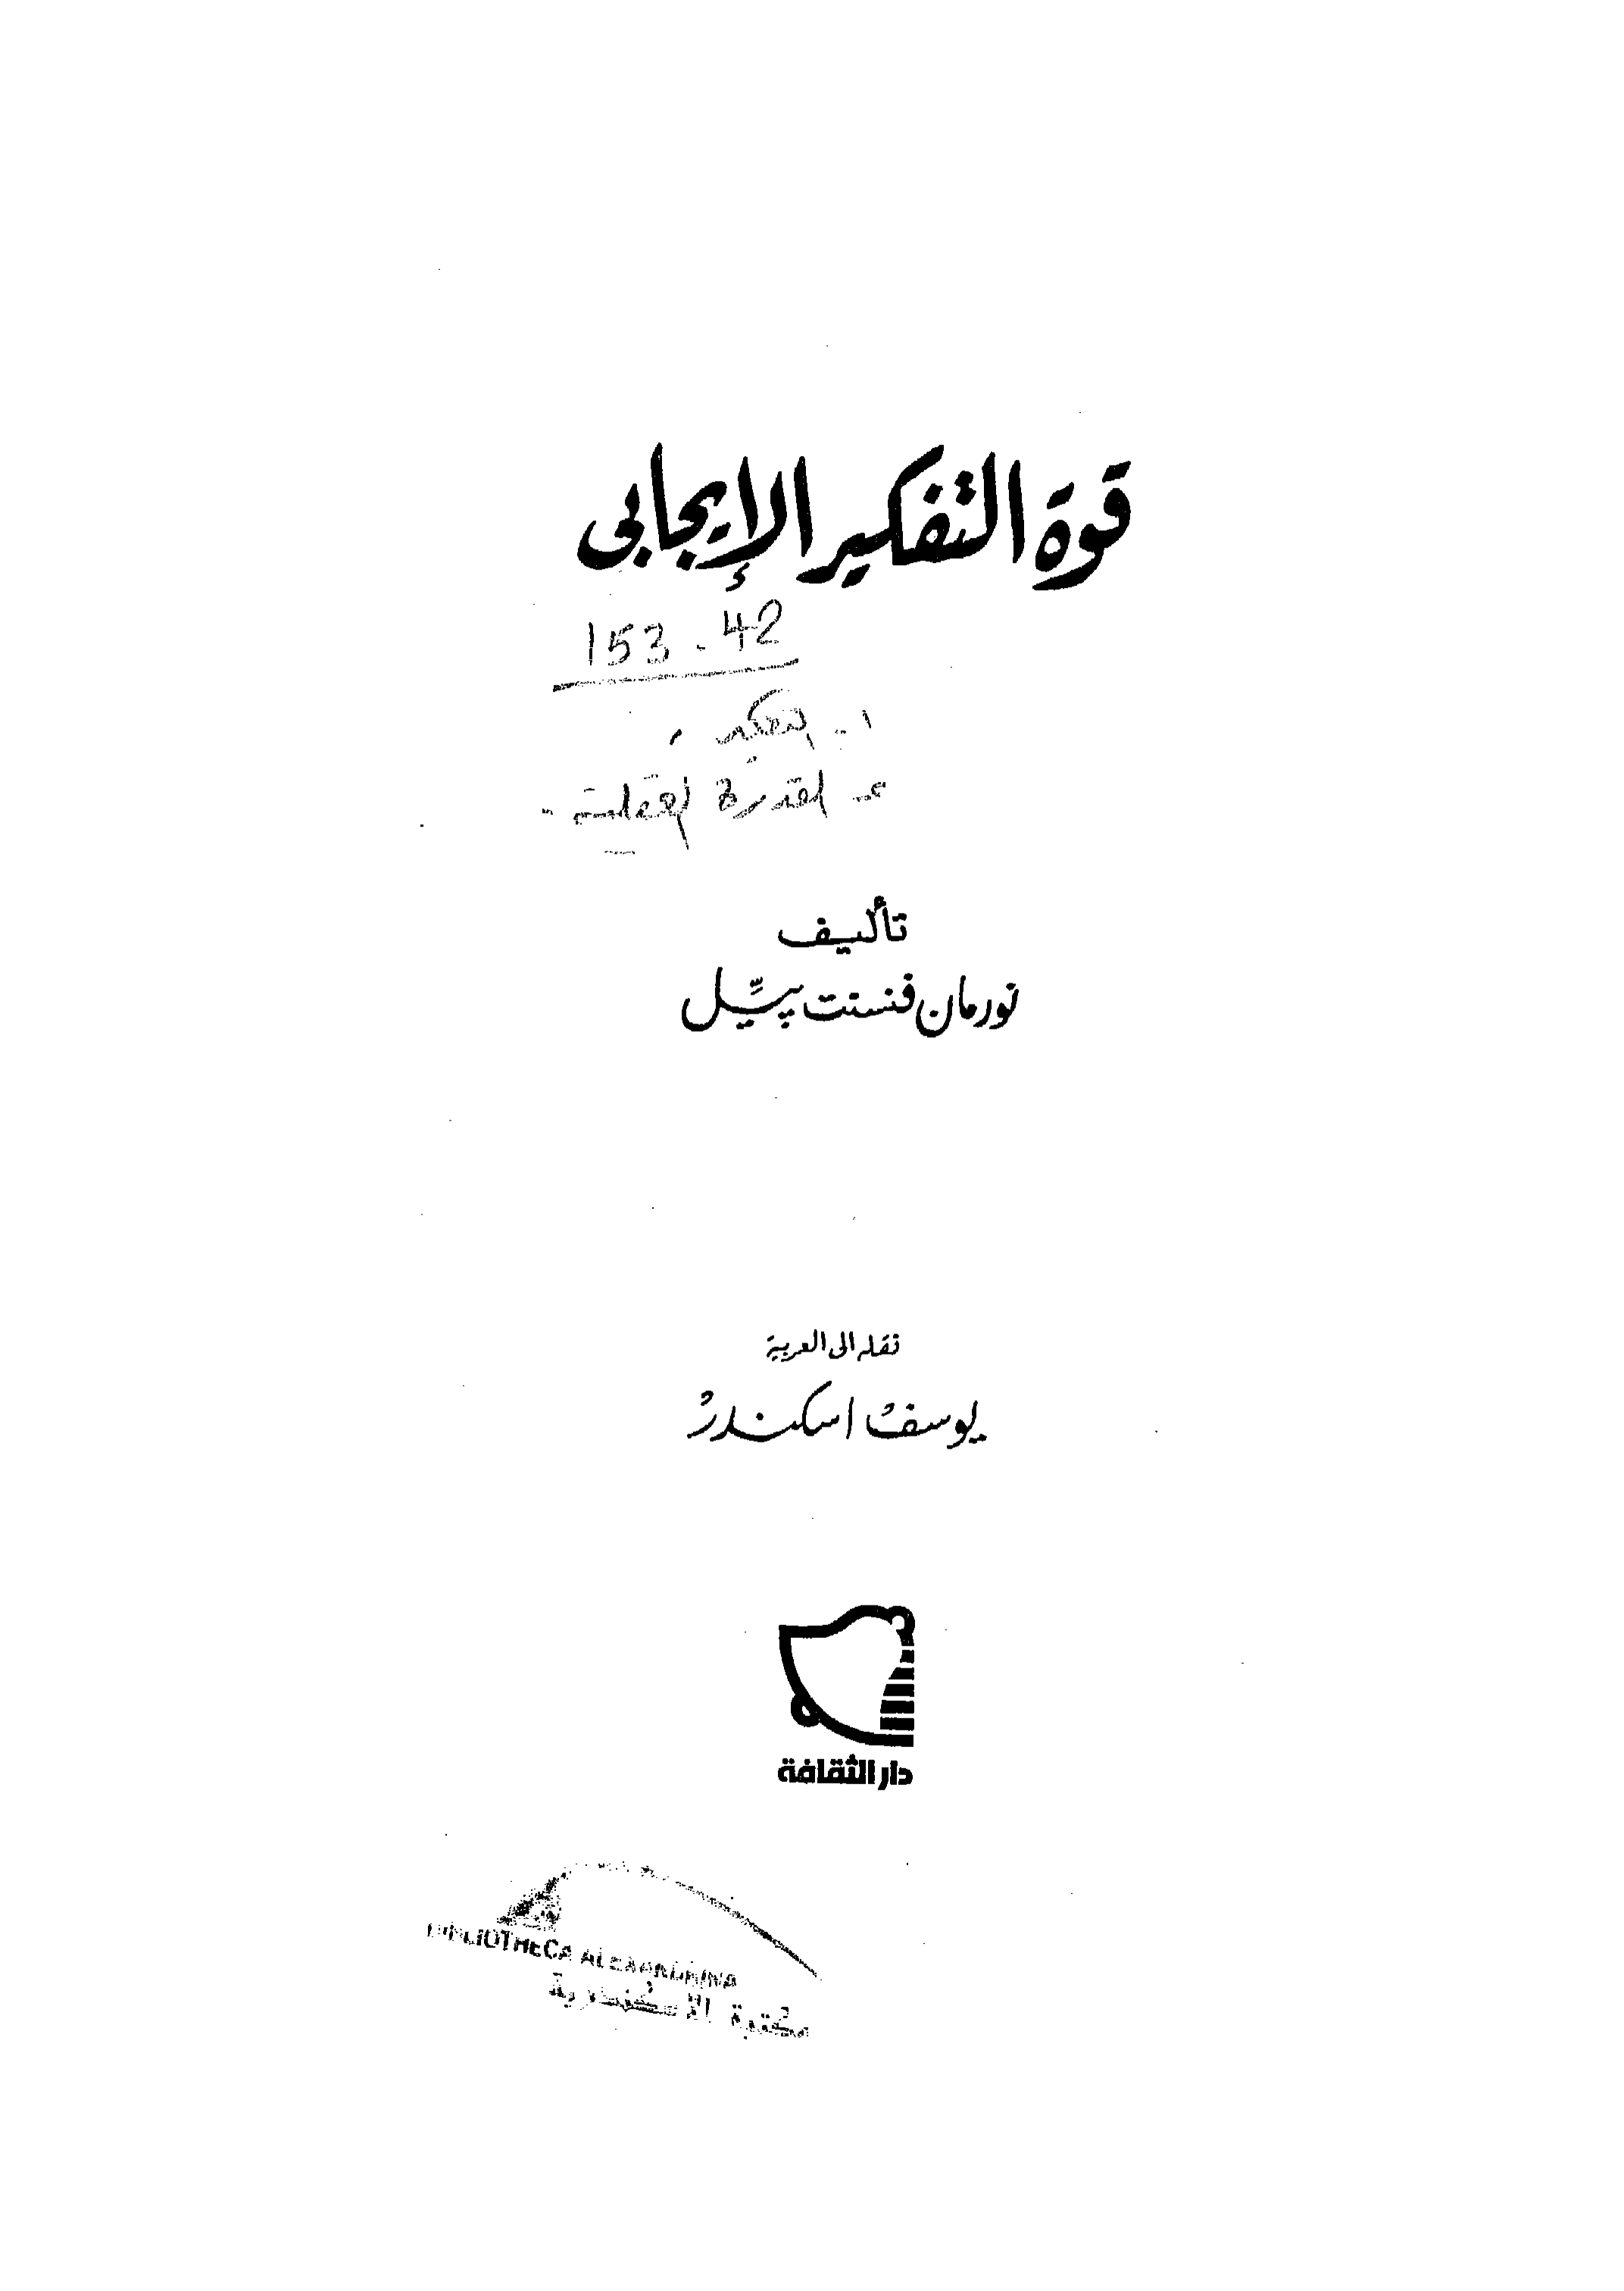 قوة التفكير الإيجابى
153.42
١ - التفكير ،
٢ - القدرة العقلية -
تأليف
نورمان فنسنت پيل
نقله الى العربية
يوسف اسكندر
دار الثقافة
BIBLIOTHECA ALEXANDRINA
مكتبة الإسكندرية